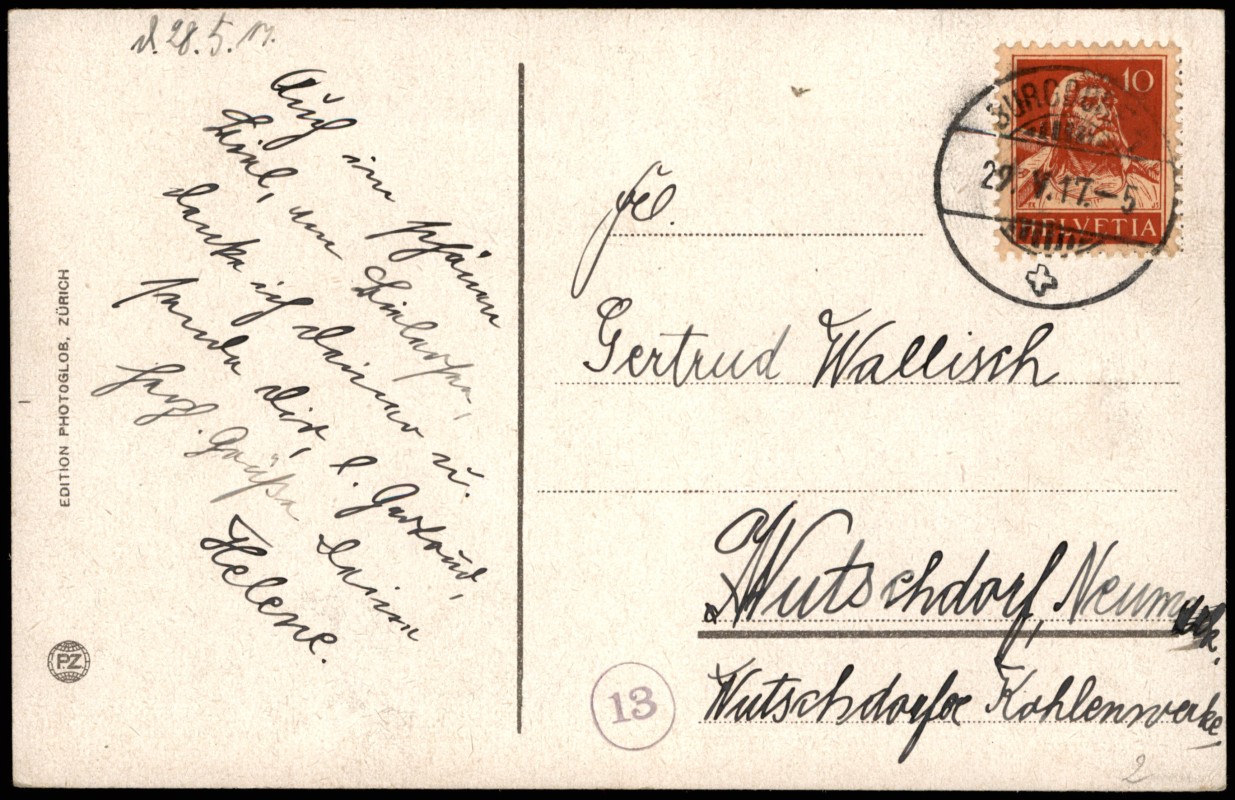 d. 28. 5. 17.
Auch im schönen
Tirol, am
denke ich deiner u.
sende dir, l. Gertrud,
herzl. Grüße Deine
Helene.
EDITION PHOTOGLOB, ZÜRICH
PZ
10
HELVETIA
29. V. 17.–5
Frl.
Gertrud Wallisch
Wutschdorf, Neumark.
Wutschdorfer Kohlenwerke
13
2